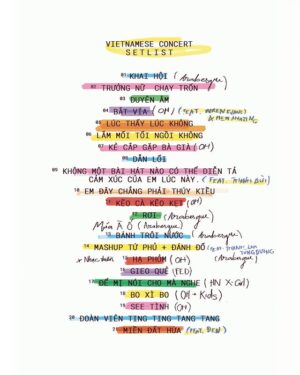 VIETNAMESE CONCERT
SETLIST
01 KHAI HỘI (Arabesque)
02 TRƯỞNG NỮ CHẠY TRỐN
03 DUYÊN ÂM
04 BẮT VÍA (OH) (FEAT.
05 LÚC THẤY LÚC KHÔNG
06 LẮM MỐI TỐI NGỒI KHÔNG
07 KẺ CẮP GẶP BÀ GIÀ (OH)
08 DẪN LỐI
09 KHÔNG MỘT BÀI HÁT NÀO CÓ THỂ DIỄN TẢ
CẢM XÚC CỦA EM LÚC NÀY. (FEAT. THANH BÙI)
10 EM ĐÂY CHẲNG PHẢI THÚY KIỀU
11 KẼO CÀ KẼO KẸT (OH)
12 RƠI (Arabesque)
Mía À Ơ (Arabesque)
13 BÁNH TRÔI NƯỚC (Arabesque)
14 MASHUP TỨ PHỦ + ĐÁNH ĐỐ (FEAT. THANH LAM
TÙNG DƯƠNG)
+ Nhạc 15 HẠ PHỎM (OH) (Arabesque)
16 GIEO QUẺ (FLD)
17 ĐỂ MỊ NÓI CHO MÀ NGHE (HN X-Girl)
18 BO XÌ BO (OH + Kids)
19 SEE TÌNH (OH)
20 ĐOÀN VIÊN TING TING TANG TANG
21 MIỀN ĐẤT HỨA (FEAT. DEN)